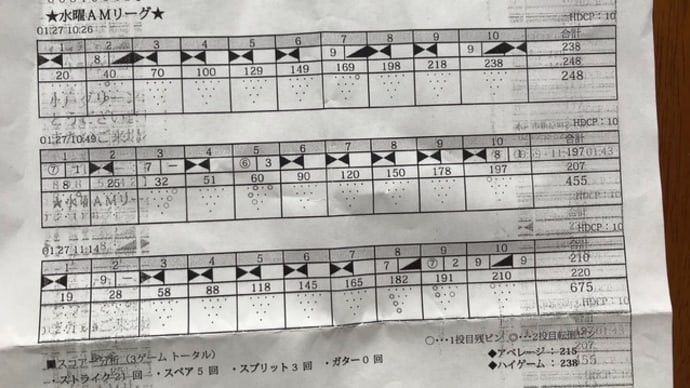 ★水曜AMリーグ★
01.27 10:26
HDCP：10
1 2 3 4 5 6 7 8 9 10 合計
8 9 9 238
20 40 70 100 129 149 169 198 218 238 248
248
HDCP：10
01.27 10:49
1 2 3 4 5 6 7 8 9 10 合計
⑦ 1 7 － ⑥ 3 8 1 197
8 25 32 51 60 90 120 150 178 197 207
★水曜AMリー 455
HDCP：10
01.27 11:14
1 2 3 4 5 6 7 8 9 10
9 － 7 ⑦ 2 9 9 210
19 28 58 88 118 145 165 182 191 210 220
675
HDCP：10
○…1投目残ピン ◎…2投目
■スコアー分析（3ゲーム トータル）
・ストライク21 回 ・スペア 5 回 ・スプリット 3 回 ・ガター 0 回
◆アベレージ：215
◆ハイゲーム：238